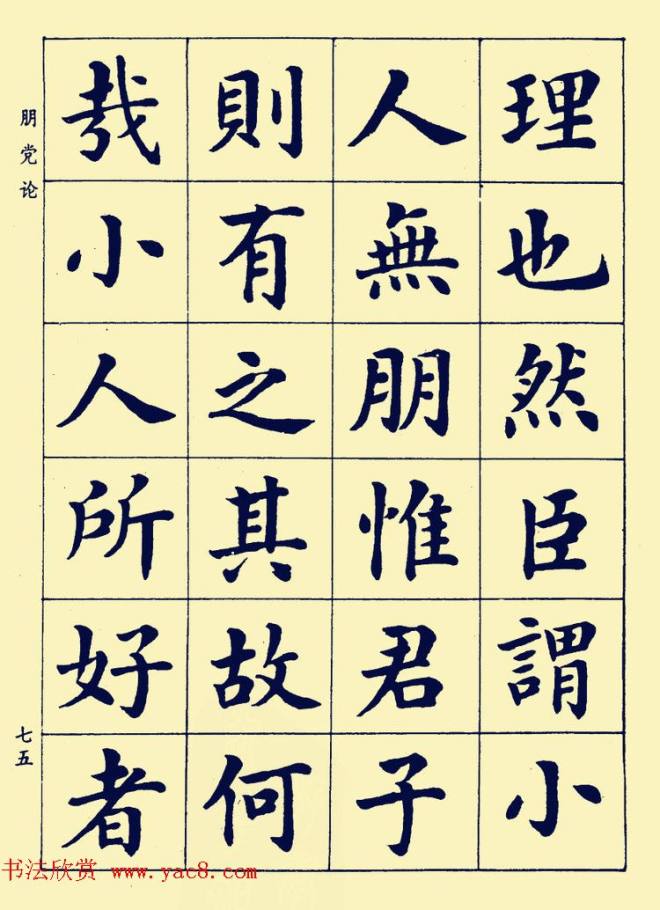 理也然臣謂小
人無朋惟君子
則有之其故何
哉小人所好者
朋党论
七五
书法欣赏 www.yac8.com